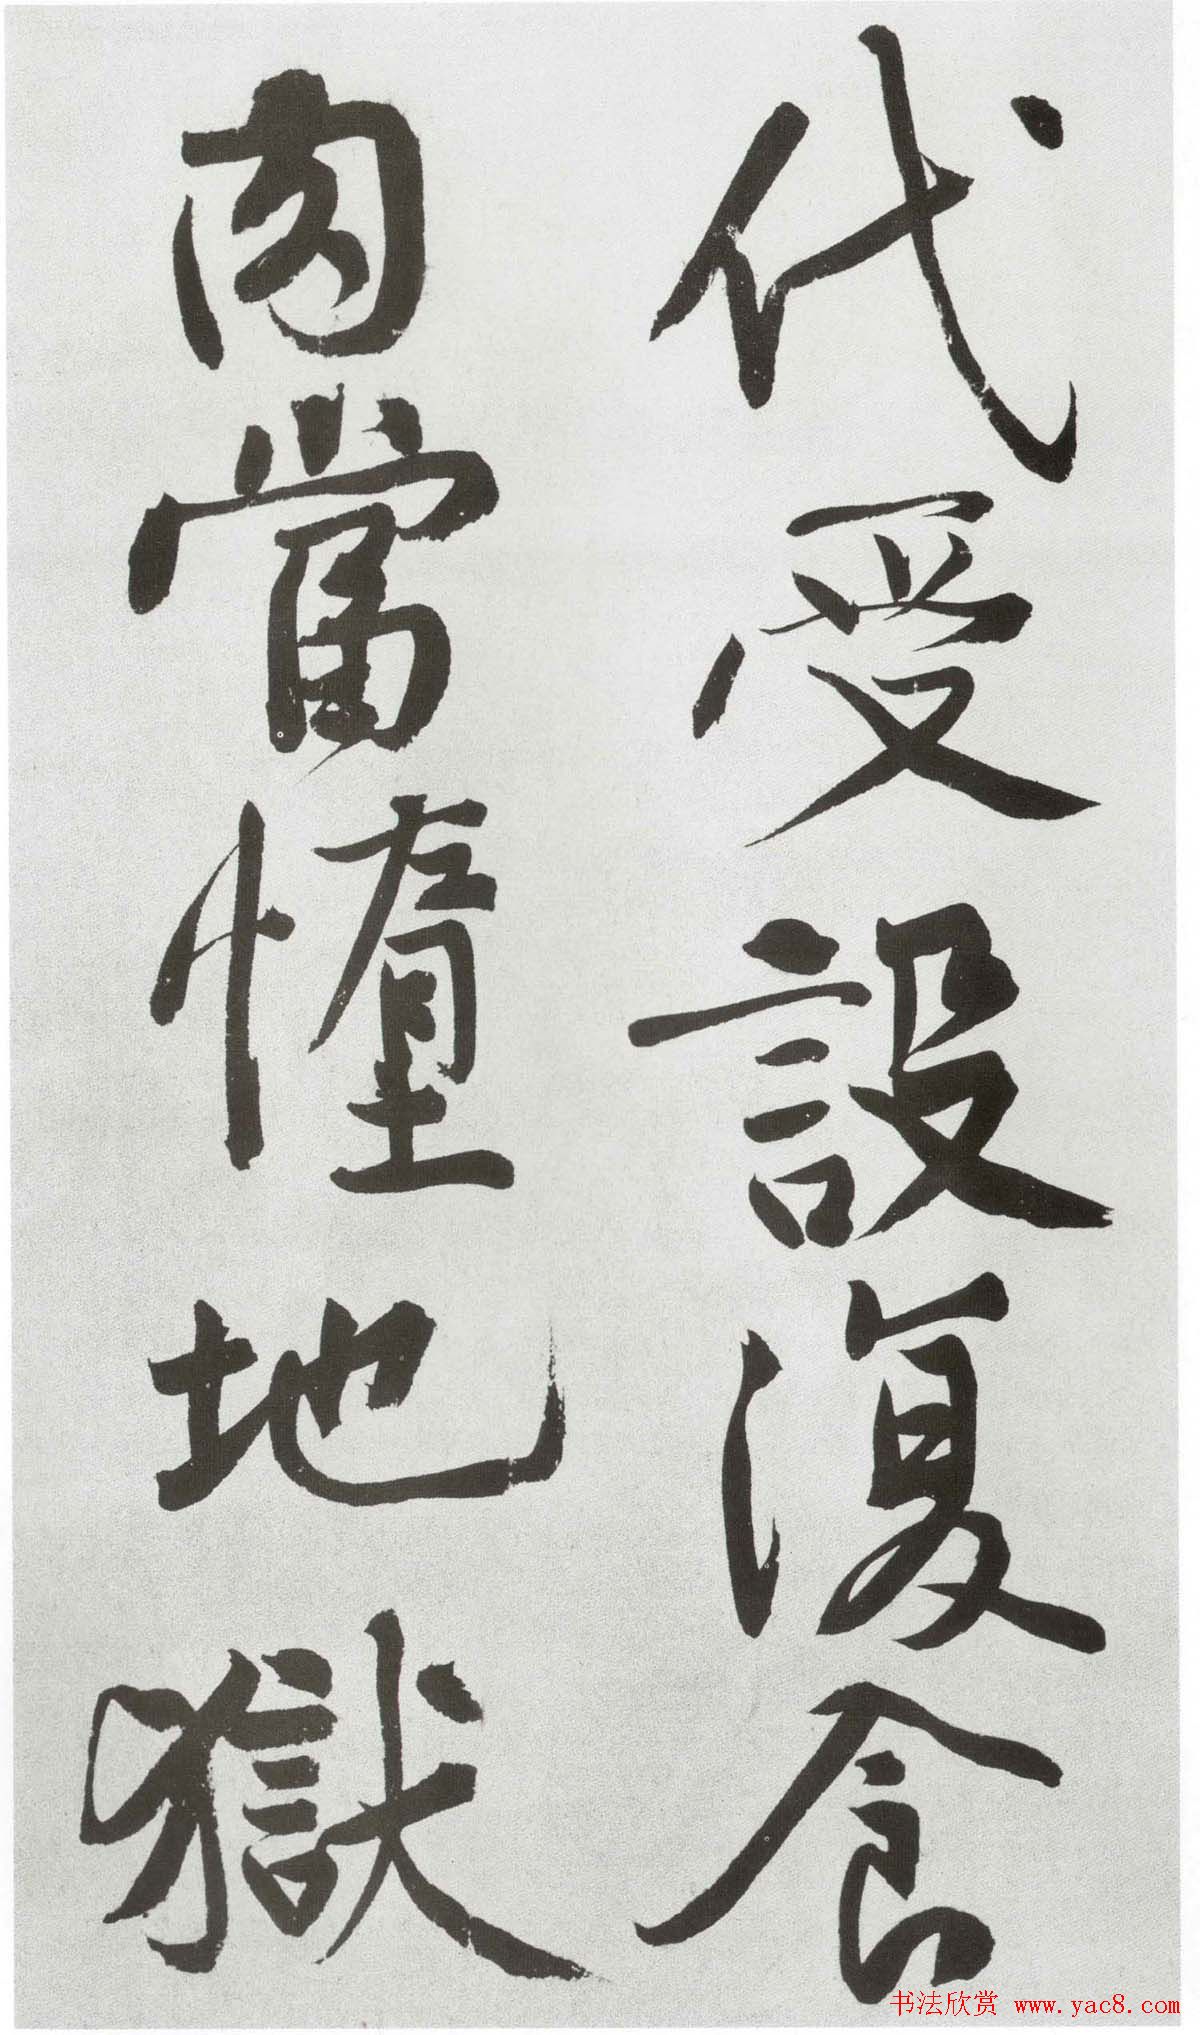 代受設復食
肉當憧地獄
书法欣赏 www.yac8.com